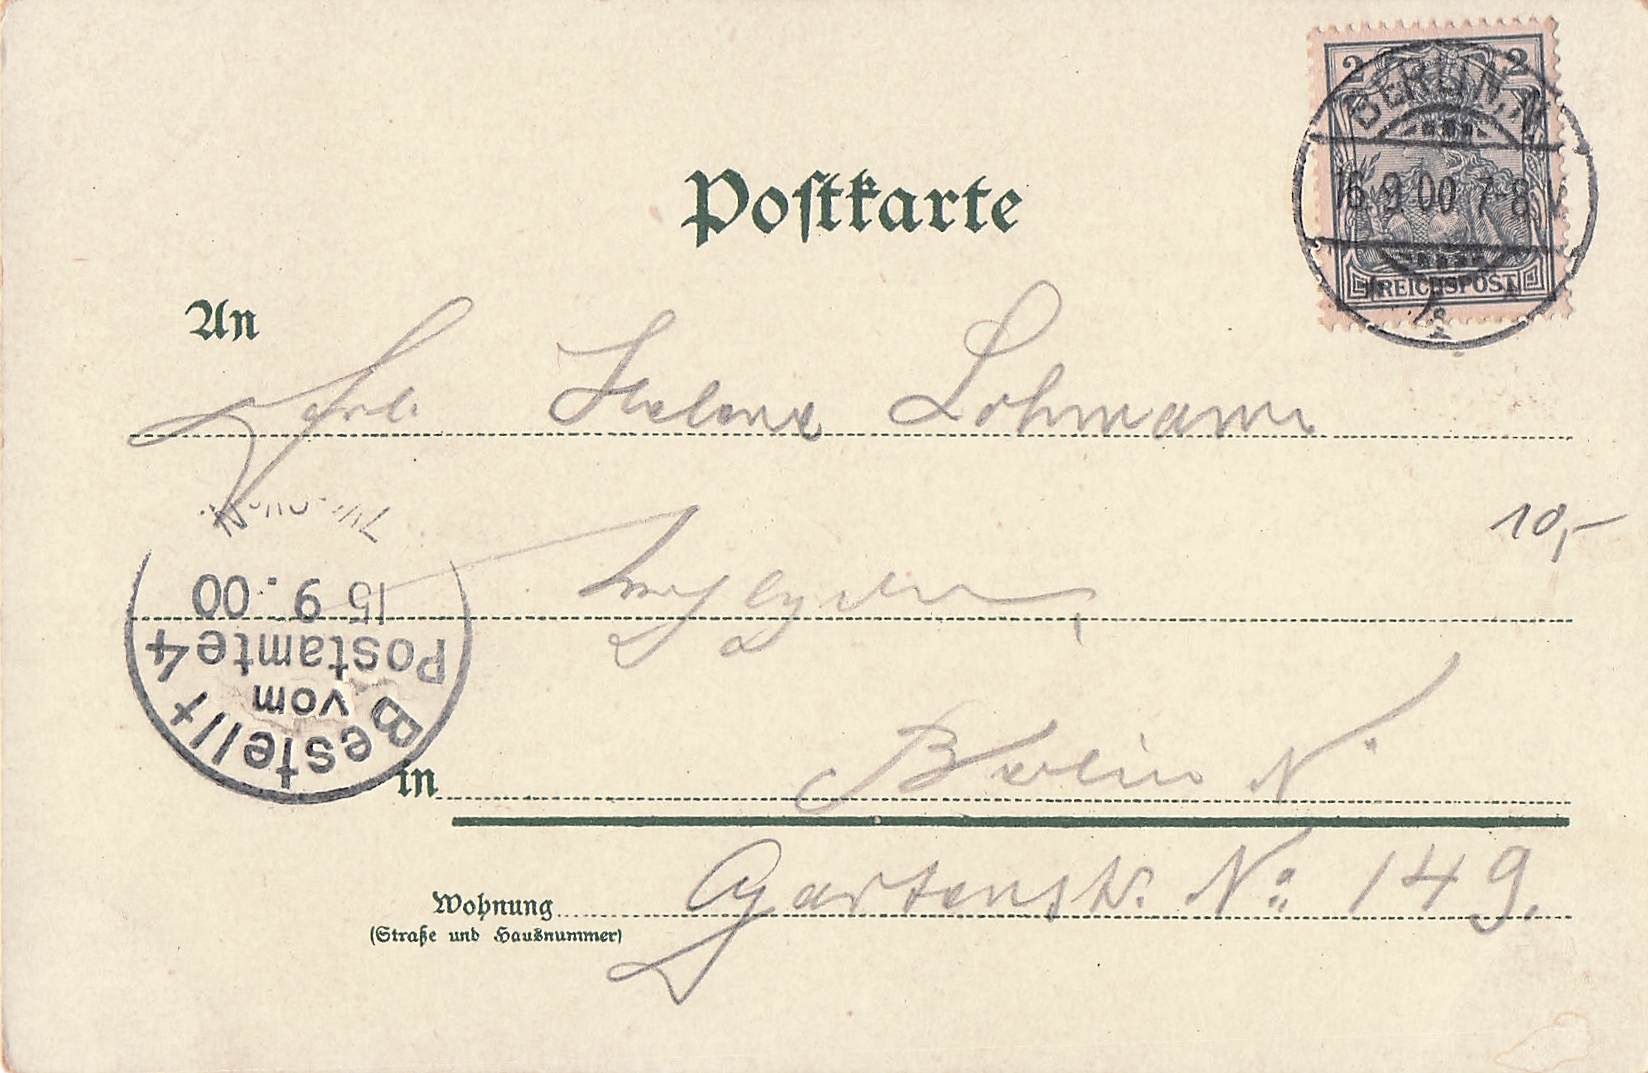 2 2
REICHSPOST
BERLIN, N.
16.9.00 7-8V
Postkarte
An
Frl. Helene Lohmann
10,-
Bestellt
vom
Postamte 4
15 9.00
in Berlin N.
Wohnung Gartenstr. No: 149.
(Straße und Hausnummer)